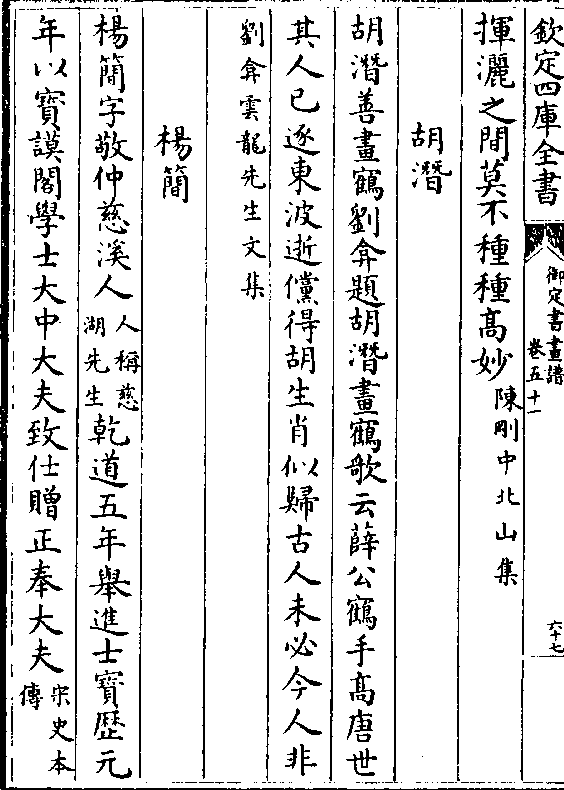 欽定四庫全書
御定書畫譜
卷五十一
六十七
揮灑之間莫不種種髙妙陳剛中北山集
胡潛
胡潛善畫鶴劉弇題胡潛畫鶴歌云薛公鶴手髙唐世
其人已逐東波逝儻得胡生肖似歸古人未必今人非
劉弇雲龍先生文集
楊簡
楊簡字敬仲慈溪人人稱慈湖先生乾道五年舉進士寳歴元
年以寳謨閣學士大中大夫致仕贈正奉大夫宋史本傳